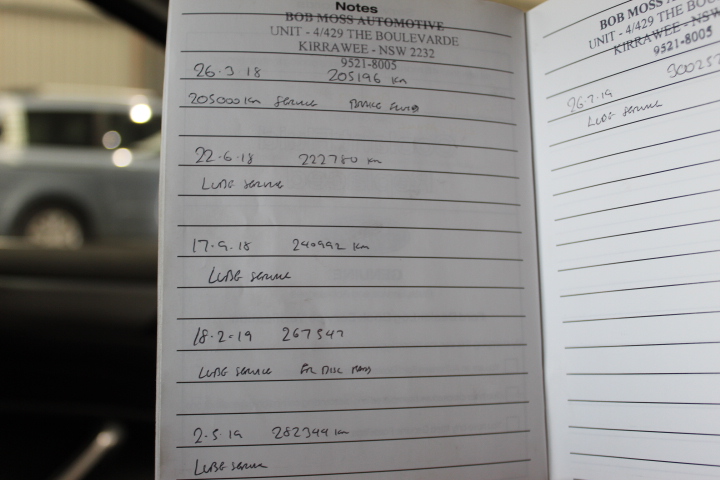 Notes
BOB MOSS AUTOMOTIVE
UNIT - 4/429 THE BOULEVARDE
KIRRAWEE - NSW 2232
9521-8005
26.3.18 205196 km
205000km Service Brake Fluid
22.6.18 222780 km
LUBE Service
17.9.18 240992 km
LUBE Service
18.2.19 267547
LUBE Service FR Disc Pads
2.5.19 282344 km
LUBE Service
BOB MOSS
UNIT - 4/429 THE
KIRRAWEE - NSW
9521-8005
26.7.19
LUBE Service